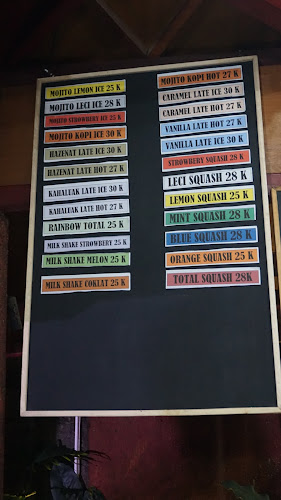 MOJITO LEMON ICE 25 K
MOJITO LECI ICE 28 K
MOJITO STROWBERY ICE 25 K
MOJITO KOPI ICE 30 K
HAZENAT LATE ICE 30 K
HAZENAT LATE HOT 27 K
KAHALUAK LATE ICE 30 K
KAHALUAK LATE HOT 27 K
RAINBOW TOTAL 25 K
MILK SHAKE STROWBERY 25 K
MILK SHAKE MELON 25 K
MILK SHAKE COKLAT 25 K
MOJITO KOPI HOT 27 K
CARAMEL LATE ICE 30 K
CARAMEL LATE HOT 27 K
VANILLA LATE HOT 27 K
VANILLA LATE ICE 30 K
STROWBERY SQUASH 28 K
LECI SQUASH 28 K
LEMON SQUASH 25 K
MINT SQUASH 28 K
BLUE SQUASH 28 K
ORANGE SQUASH 25 K
TOTAL SQUASH 28K